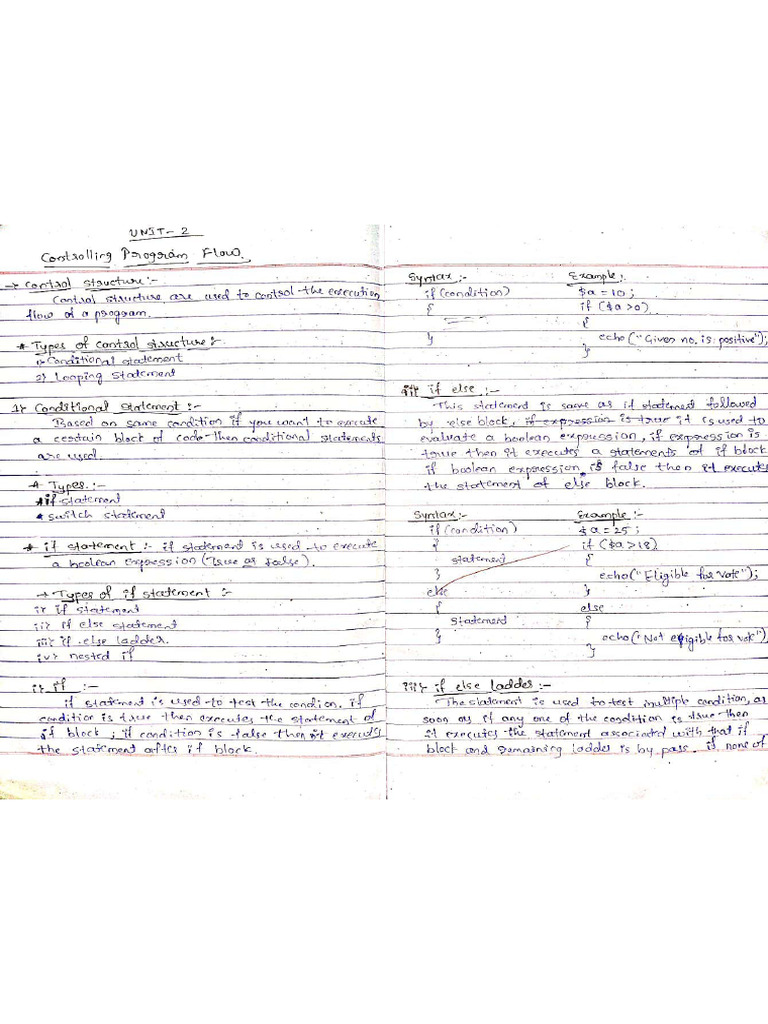 UNIT-2
Controlling Program Flow.
→ Control structure:-
Control structure are used to control the execution
flow of a program.
* Types of control structure:-
1) Conditional statement
2) Looping Statement
1) Conditional statement :-
Based on some condition if you want to execute
a certain block of code then conditional statements
are used.
* Types:-
* if statement
* switch statement
* if statement :- if statement is used to execute
a boolean expression (True or False).
→ Types of if statement :-
i) if statement
ii) if else statement
iii) if else ladder.
iv) nested if
i) if :-
if statement is used to test the condion. if
condition is true then executes the statement of
if block ; if condition is false then it executes
the statement after if block.
Syntax:- Example:
if (condition) $a = 10;
{ if ($a>0)
{
} echo("Given no. is positive");
}
ii) if else :-
This statement is same as if statement followed
by else block, if expression is true it is used to
evaluate a boolean expression, if expression is
true then it executes a statements of if block
if boolean expression is false then it executes
the statement of else block.
Syntax:- Example:-
if (condition) $a = 25;
{ if ($a>18)
statement {
} echo("Eligible for vote");
else }
{ else
Statement {
} echo("Not eligible for vote")
}
iii) if else ladder:-
The statement is used to test multiple condition, as
soon as if any one of the condition is true then
it executes the statement associated with that if
block and remaining ladder is by pass. if none of